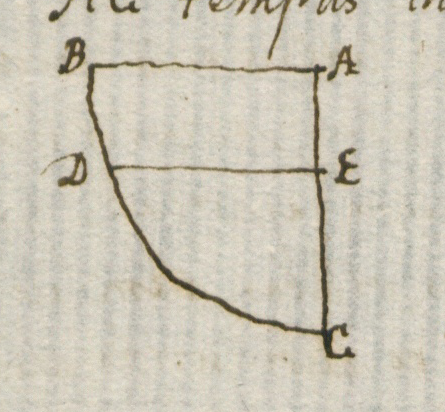 tempus in
B A
D E
C